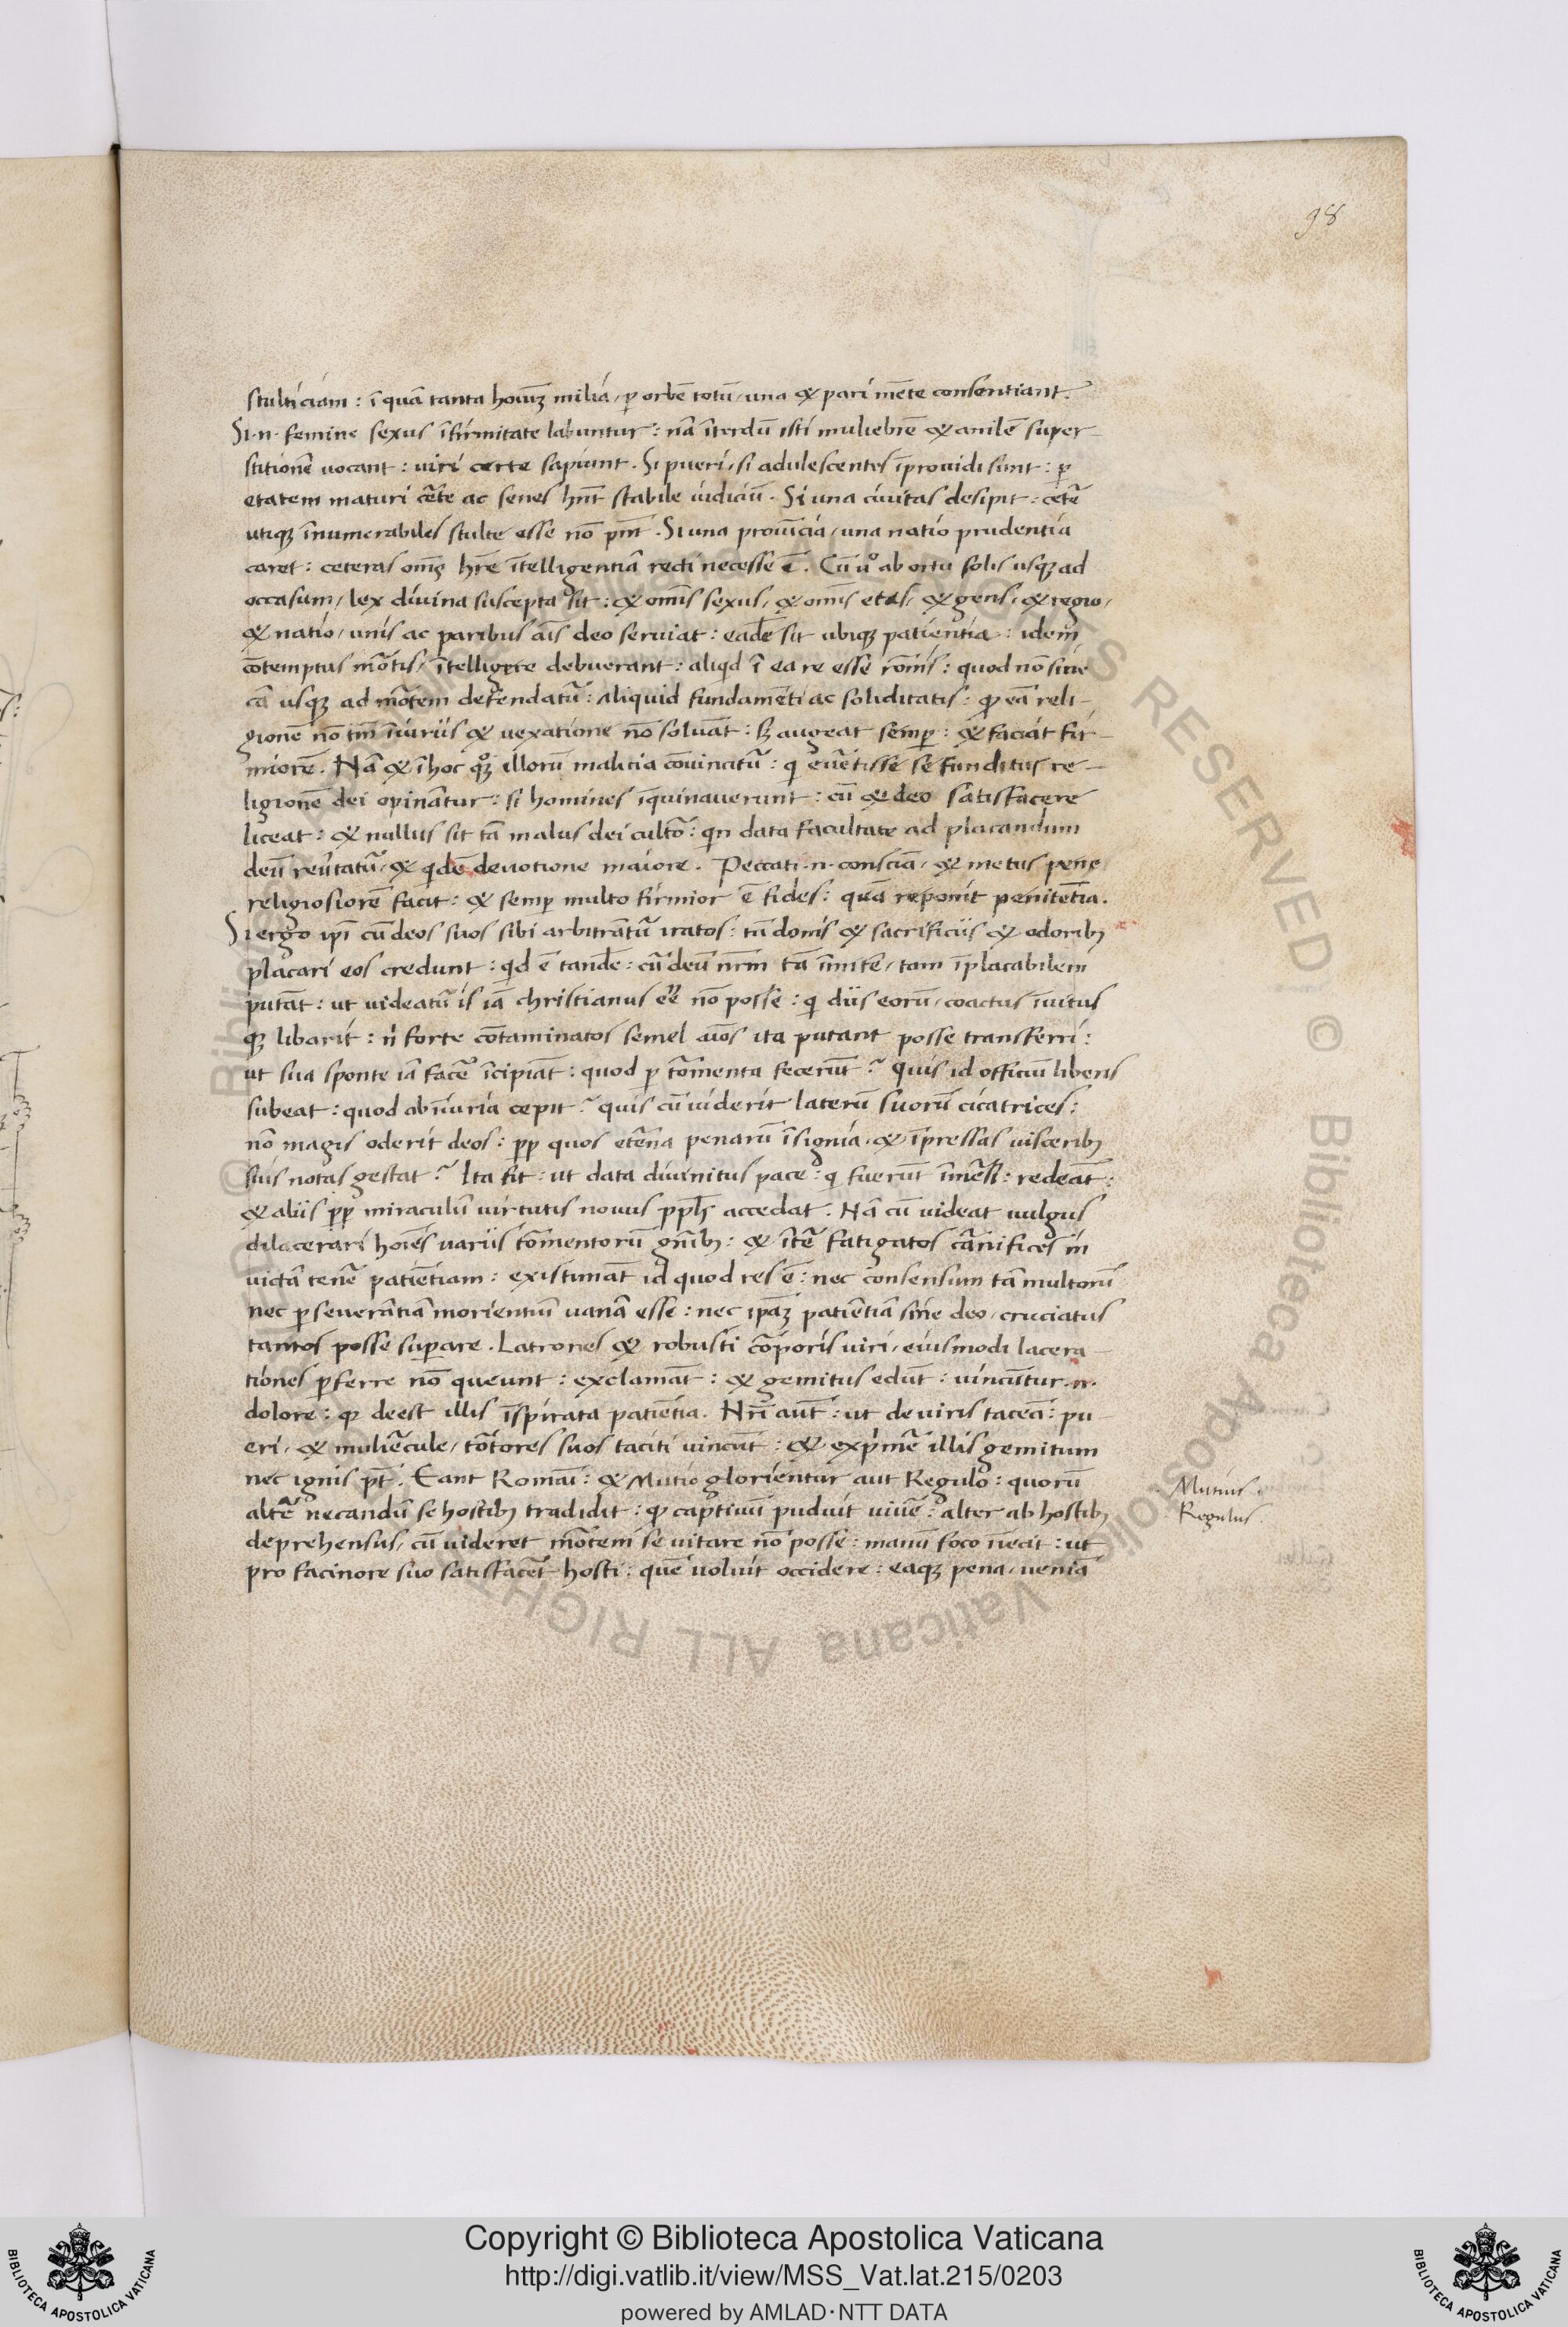 98
stulticiam: ī quā tanta hoium milia, p orbē totū, una & pari mēte consentiant.
Si .n. femine sexus īfirmitate labuntur: nā īterdū isti muliebrē & anilē super-
stitionē uocant: uiri certe sapiunt. Si pueri, si adulescentes īprouidi sunt: p
etatem maturi cēte ac senes hnt stabile iudiciū. Si una ciuitas desipit: cetē
utiqꝫ īnumerabiles stulte esse nō pnt. Si una prouīcia, una natio prudentia
caret: ceteras omīs hrē ītelligentiā recti necesse ē. Cū uº ab ortu solis usqꝫ ad
occasum, lex diuina suscepta sit: & omīs sexus, & omīs etas, & gens, & regio,
& natio, unis ac paribus aīs deo seruiat: eadē sit ubiqꝫ patientia: idem
cōtemptus mōtis, ītelligere debuerant: aliqd ī ea re esse rōnis: quod nō sine
cā usqꝫ ad mōtem defendatū: aliquid fundamēti ac soliditatis: q̄ eā reli-
gionē nō tm īiuriis & uexatione nō soluāt: sꝫ augeat semp: & faciat fir-
miorē. Nā & ī hoc qºꝫ illorū malicia cōuincitū: q euētisse se funditus re-
ligionē dei opināntur: si homines īquinauerunt: cū & deo satisfacere
liceat: & nullus sit tā malus dei cultō: qn data facultate ad placandum
deū reūtatū, & qdē deuotione maiore. Peccati .n. consciā, & metus pene
religiosiorē facit: & semp multo firmior ē fides: quā reponit penitētia.
Si ergo ipi cū deos suos sibi arbitrāntū iratos: tn donis & sacrificiis & odoribꝫ
placari eos credunt: qd ē tandē: cū deū nrm tā īmitē, tam īplacabilem
putāt: ut uideatū is iā christianus eē nō posse: q diis eorū, coactus īuitus
qꝫ libarit: nī forte cōtaminatos semel aīos ita putant posse transferri:
ut sua sponte iā facē īcipiāt: quod p tōmenta fecerūt? quis id officiū libens
subeat: quod ab īiuria cepit? quis cū uiderit laterū suorū cicatrices:
nō magis oderit deos: pp quos etēna penarū īsignia, & īpressas uisceribꝫ
suis notas gestat? Ita fit: ut data diuinitus pace: q fuerūt īmēsi: redeāt:
& aliis pp miraculū uirtutis nouus ppls accedat. Nā cū uideat uulgus
dilacerari hoīes uariis tōmentorū gnībꝫ: & ītē fatigatos cānifices in
uictā tenē patiētiam: existimāt id quod res ē: nec consensum tā multorū
nec pseuerātiā morientiū uanā esse: nec ipāꝫ patiētiā sine deo, cruciatus
tantos posse supare. Latrones & robusti cōporis uiri, eiusmodi lacera-
tiones pferre nō queunt: exclamāt: & gemitus edūt: uincūtur .n.
dolore: q deest illis īspirata patiētia. Nrī aut: ut de uiris taceā: pu-
eri, & muliēcule, tōtores suos taciti uincūt: & expmē illis gemitum
nec ignis pt. Eant Romāi: & Mutio glorientur aut Regulo: quorū
altē necandū se hostibꝫ tradidit: q captiuū puduit uiuē: alter ab hostibꝫ
deprehensus, cū uideret mōtem se uitare nō posse: manū foco īiecit: ut
pro facinore suo satisfacēt hosti: quē uoluit occidere: eaqꝫ pena, ueniā
Mutius.
Regulus.
Copyright © Biblioteca Apostolica Vaticana
http://digi.vatlib.it/view/MSS_Vat.lat.215/0203
powered by AMLAD·NTT DATA
BIBLIOTECA APOSTOLICA VATICANA
BIBLIOTECA APOSTOLICA VATICANA